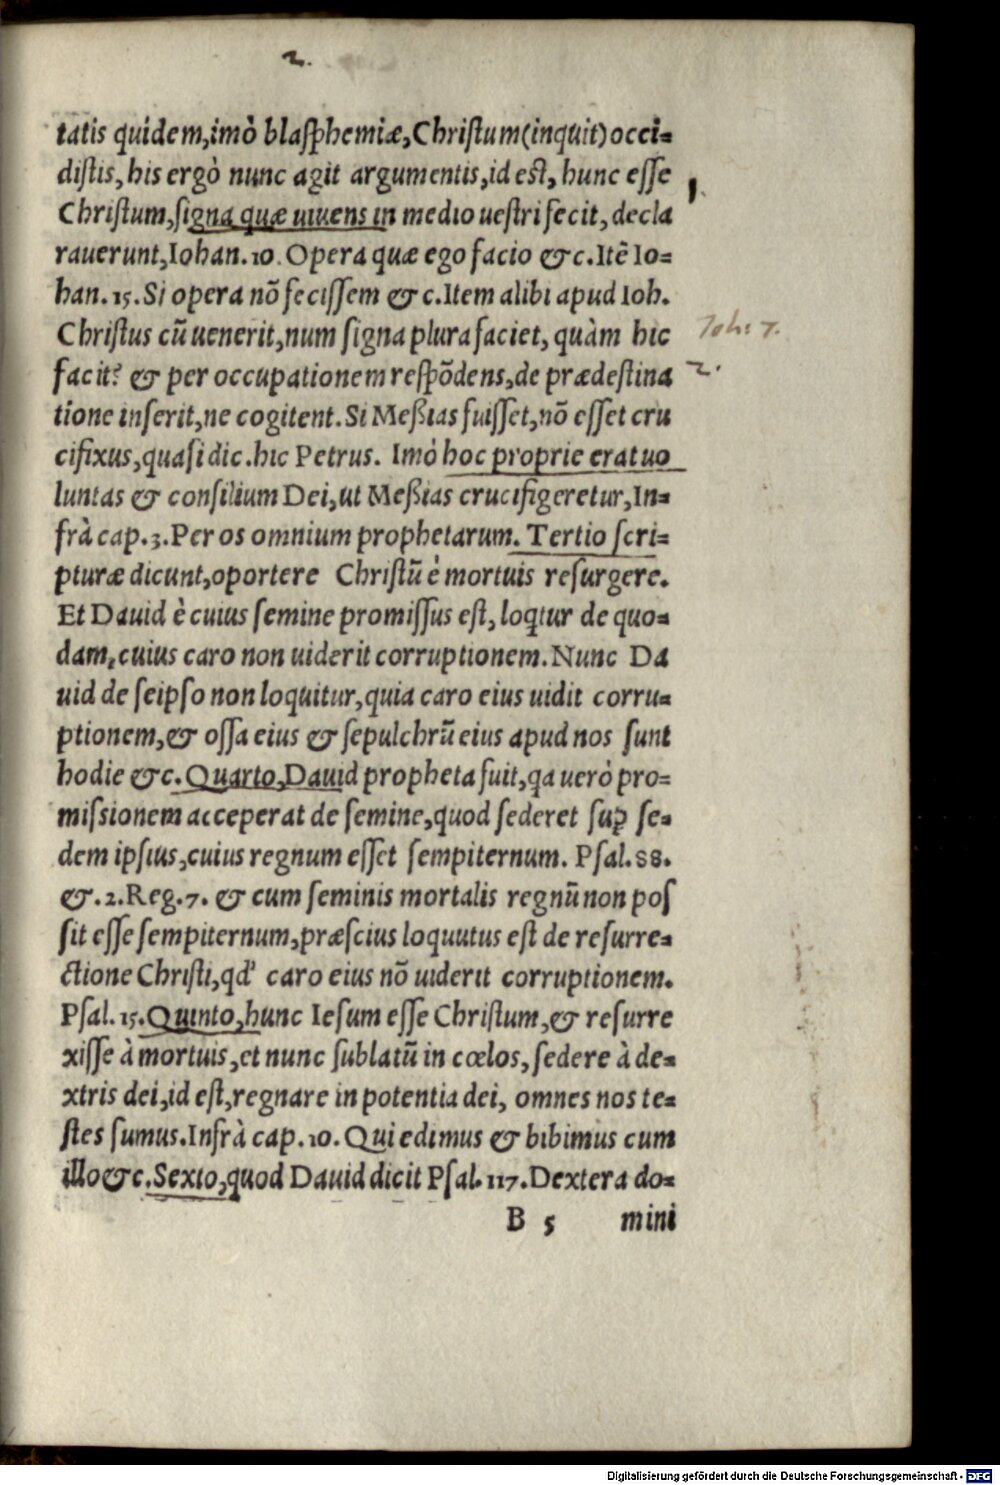 2.
tatis quidem, imò blasphemiæ, Christum (inquit) occi-
distis, his ergò nunc agit argumentis, id est, hunc esse
1.
Christum, signa quæ uiuens in medio uestri fecit, decla
rauerunt, Iohan. 10. Opera quæ ego facio &c. Itẽ Io-
han. 15. Si opera nõ fecissem &c. Item alibi apud Ioh.
Christus cũ uenerit, num signa plura faciet, quàm hic
Joh: 7.
facit? & per occupationem respõdens, de prædestina
2.
tione inserit, ne cogitent. Si Meßias fuisset, nõ esset cru
cifixus, quasi dic. hic Petrus. Imò hoc proprie erat uo
luntas & consilium Dei, ut Meßias crucifigeretur, In-
frà cap. 3. Per os omnium prophetarum. Tertio scri-
pturæ dicunt, oportere Christũ è mortuis resurgere.
Et Dauid è cuius semine promissus est, loqtur de quo-
dam, cuius caro non uiderit corruptionem. Nunc Da
uid de seipso non loquitur, quia caro eius uidit corru-
ptionem, & ossa eius & sepulchrũ eius apud nos sunt
hodie &c. Quarto, Dauid propheta fuit, qa uerò pro-
missionem acceperat de semine, quod sederet suꝑ se-
dem ipsius, cuius regnum esset sempiternum. Psal. 88.
&. 2. Reg. 7. & cum seminis mortalis regnũ non pos
sit esse sempiternum, præscius loquutus est de resurre-
ctione Christi, qd' caro eius nõ uiderit corruptionem.
Psal. 15. Quinto, hunc Iesum esse Christum, & resurre
xisse à mortuis, et nunc sublatũ in cœlos, sedere à de-
xtris dei, id est, regnare in potentia dei, omnes nos te-
stes sumus. Infrà cap. 10. Qui edimus & bibimus cum
illo &c. Sexto, quod Dauid dicit Psal. 117. Dextera do-
B 5 mini
Digitalisierung gefördert durch die Deutsche Forschungsgemeinschaft - DFG